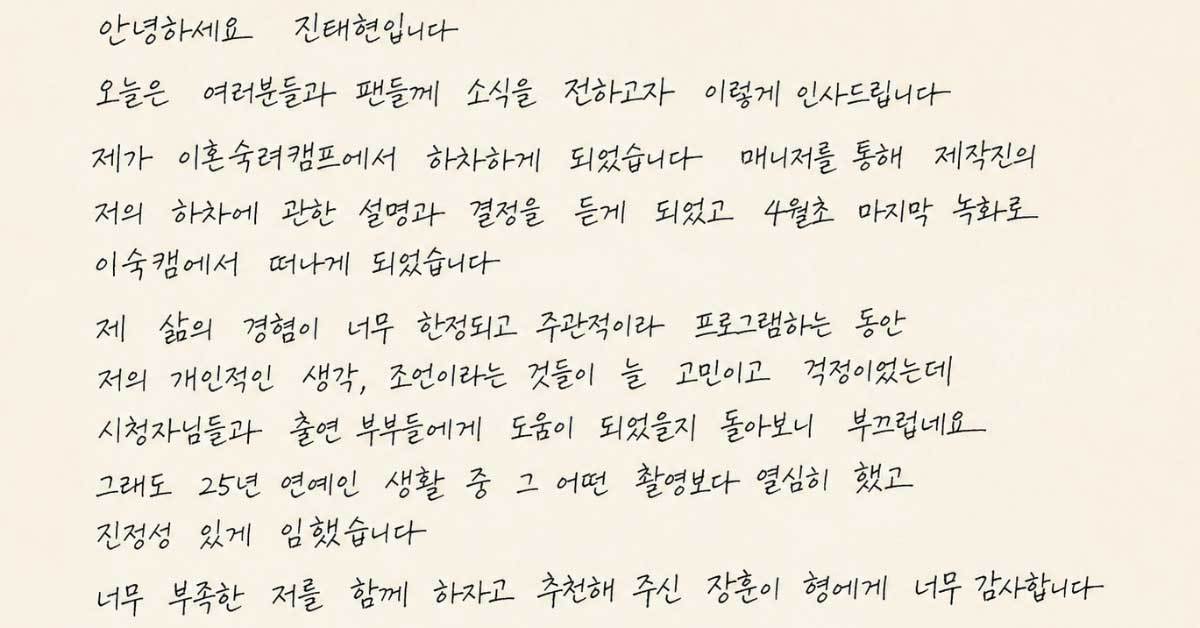 안녕하세요 진태현입니다
오늘은 여러분들과 팬들께 소식을 전하고자 이렇게 인사드립니다
제가 이혼숙려캠프에서 하차하게 되었습니다 매니저를 통해 제작진의
저의 하차에 관한 설명과 결정을 듣게 되었고 4월초 마지막 녹화로
이숙캠에서 떠나게 되었습니다
제 삶의 경험이 너무 한정되고 주관적이라 프로그램하는 동안
저의 개인적인 생각, 조언이라는 것들이 늘 고민이고 걱정이었는데
시청자님들과 출연 부부들에게 도움이 되었을지 돌아보니 부끄럽네요
그래도 25년 연예인 생활 중 그 어떤 촬영보다 열심히 했고
진정성 있게 임했습니다
너무 부족한 저를 함께 하자고 추천해 주신 장훈이 형에게 너무 감사합니다